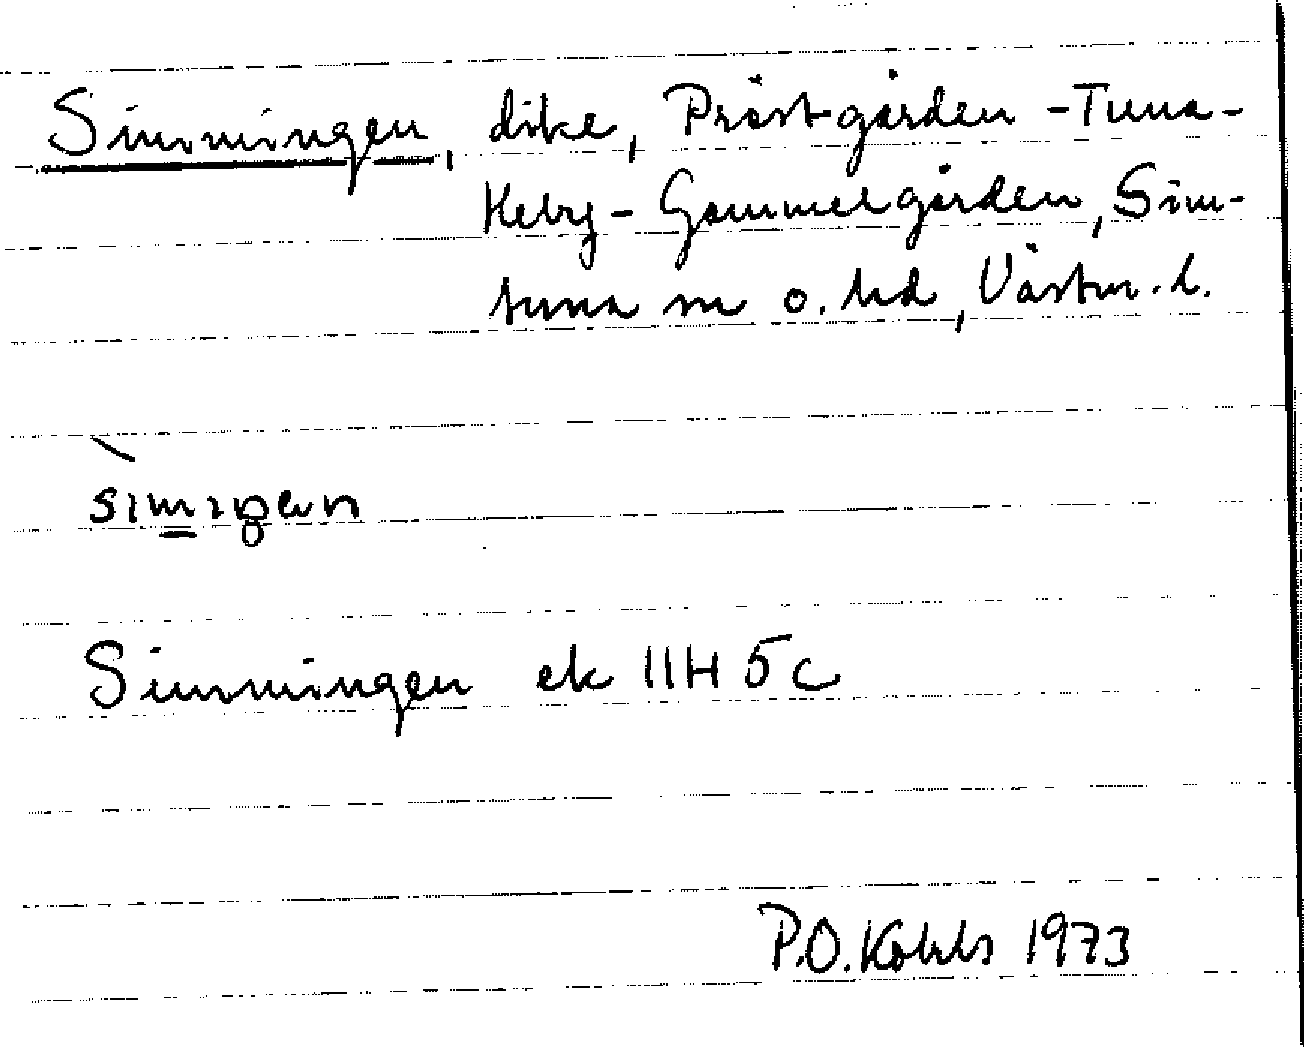 Simmingen, dike, Prästgården - Tuna-
Heby - Gammelgården, Sim-
tuna sn o. hd, Västm. l.
Simmingen ek 11H 5c
P.O. Kohls 1973